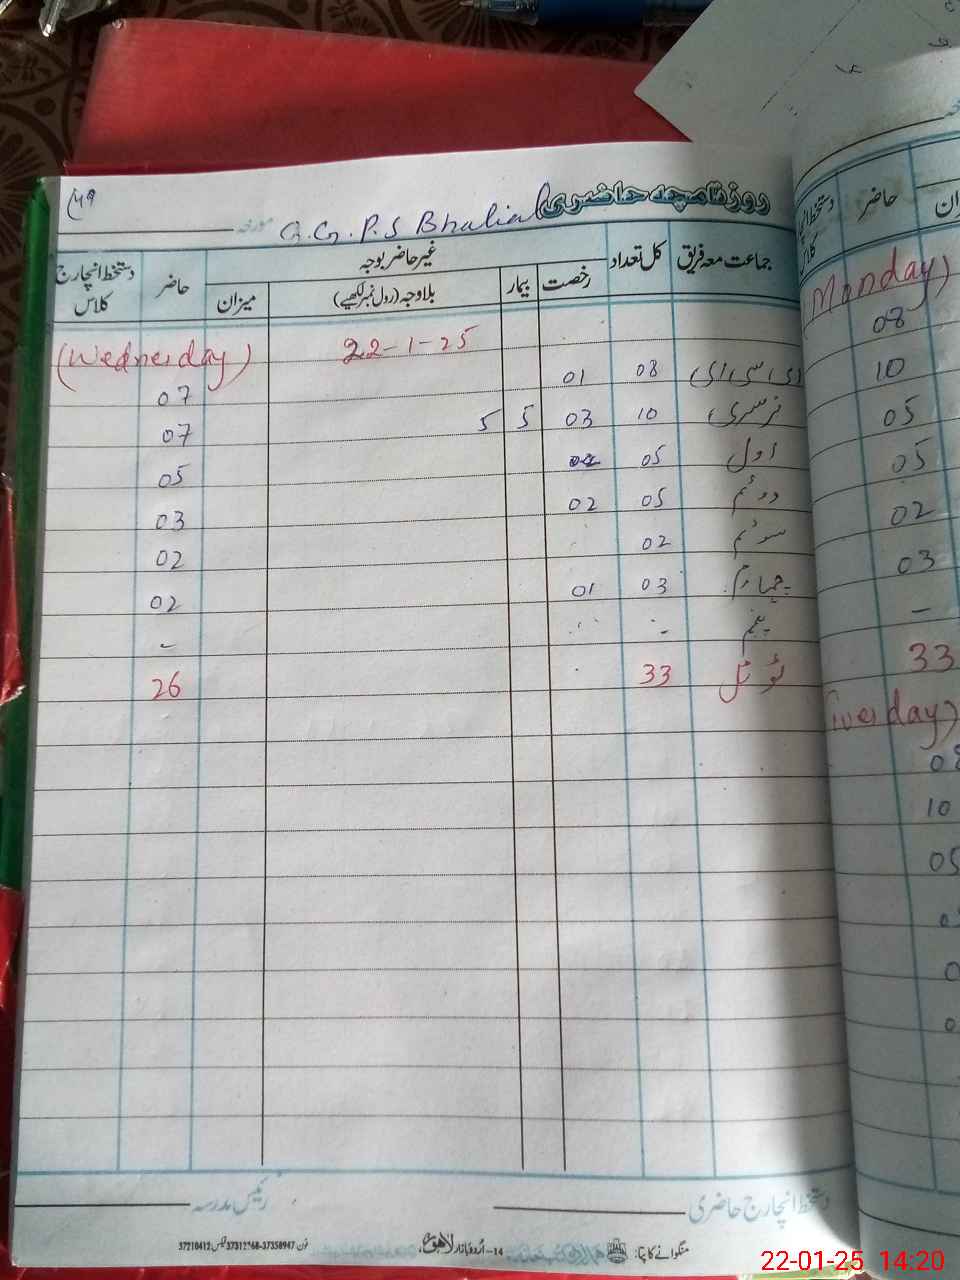 روزنامچہ حاضری
مورخہ G.G.P.S Bhalial
جماعت معہ فریق کل تعداد غیر حاضر بوجہ حاضر دستخط انچارج کلاس
رخصت بیمار بلاوجہ (رول نمبر لکھیے) میزان
22-1-25 (Wednesday)
ای سی ای 08 01 07
نرسری 10 03 5 5 07
اول 05 05
دوئم 05 02 03
سوئم 02 02
چہارم 03 01 02
پنجم - -
ٹوٹل 33 26
دستخط انچارج حاضری رئیس مدرسہ
منگوانے کا پتا: 14-اُردو بازار لاہور،
حاضر
دستخط انچارج
کلاس
(Monday)
08
10
05
05
02
03
-
33
10
05
22-01-25 14:20